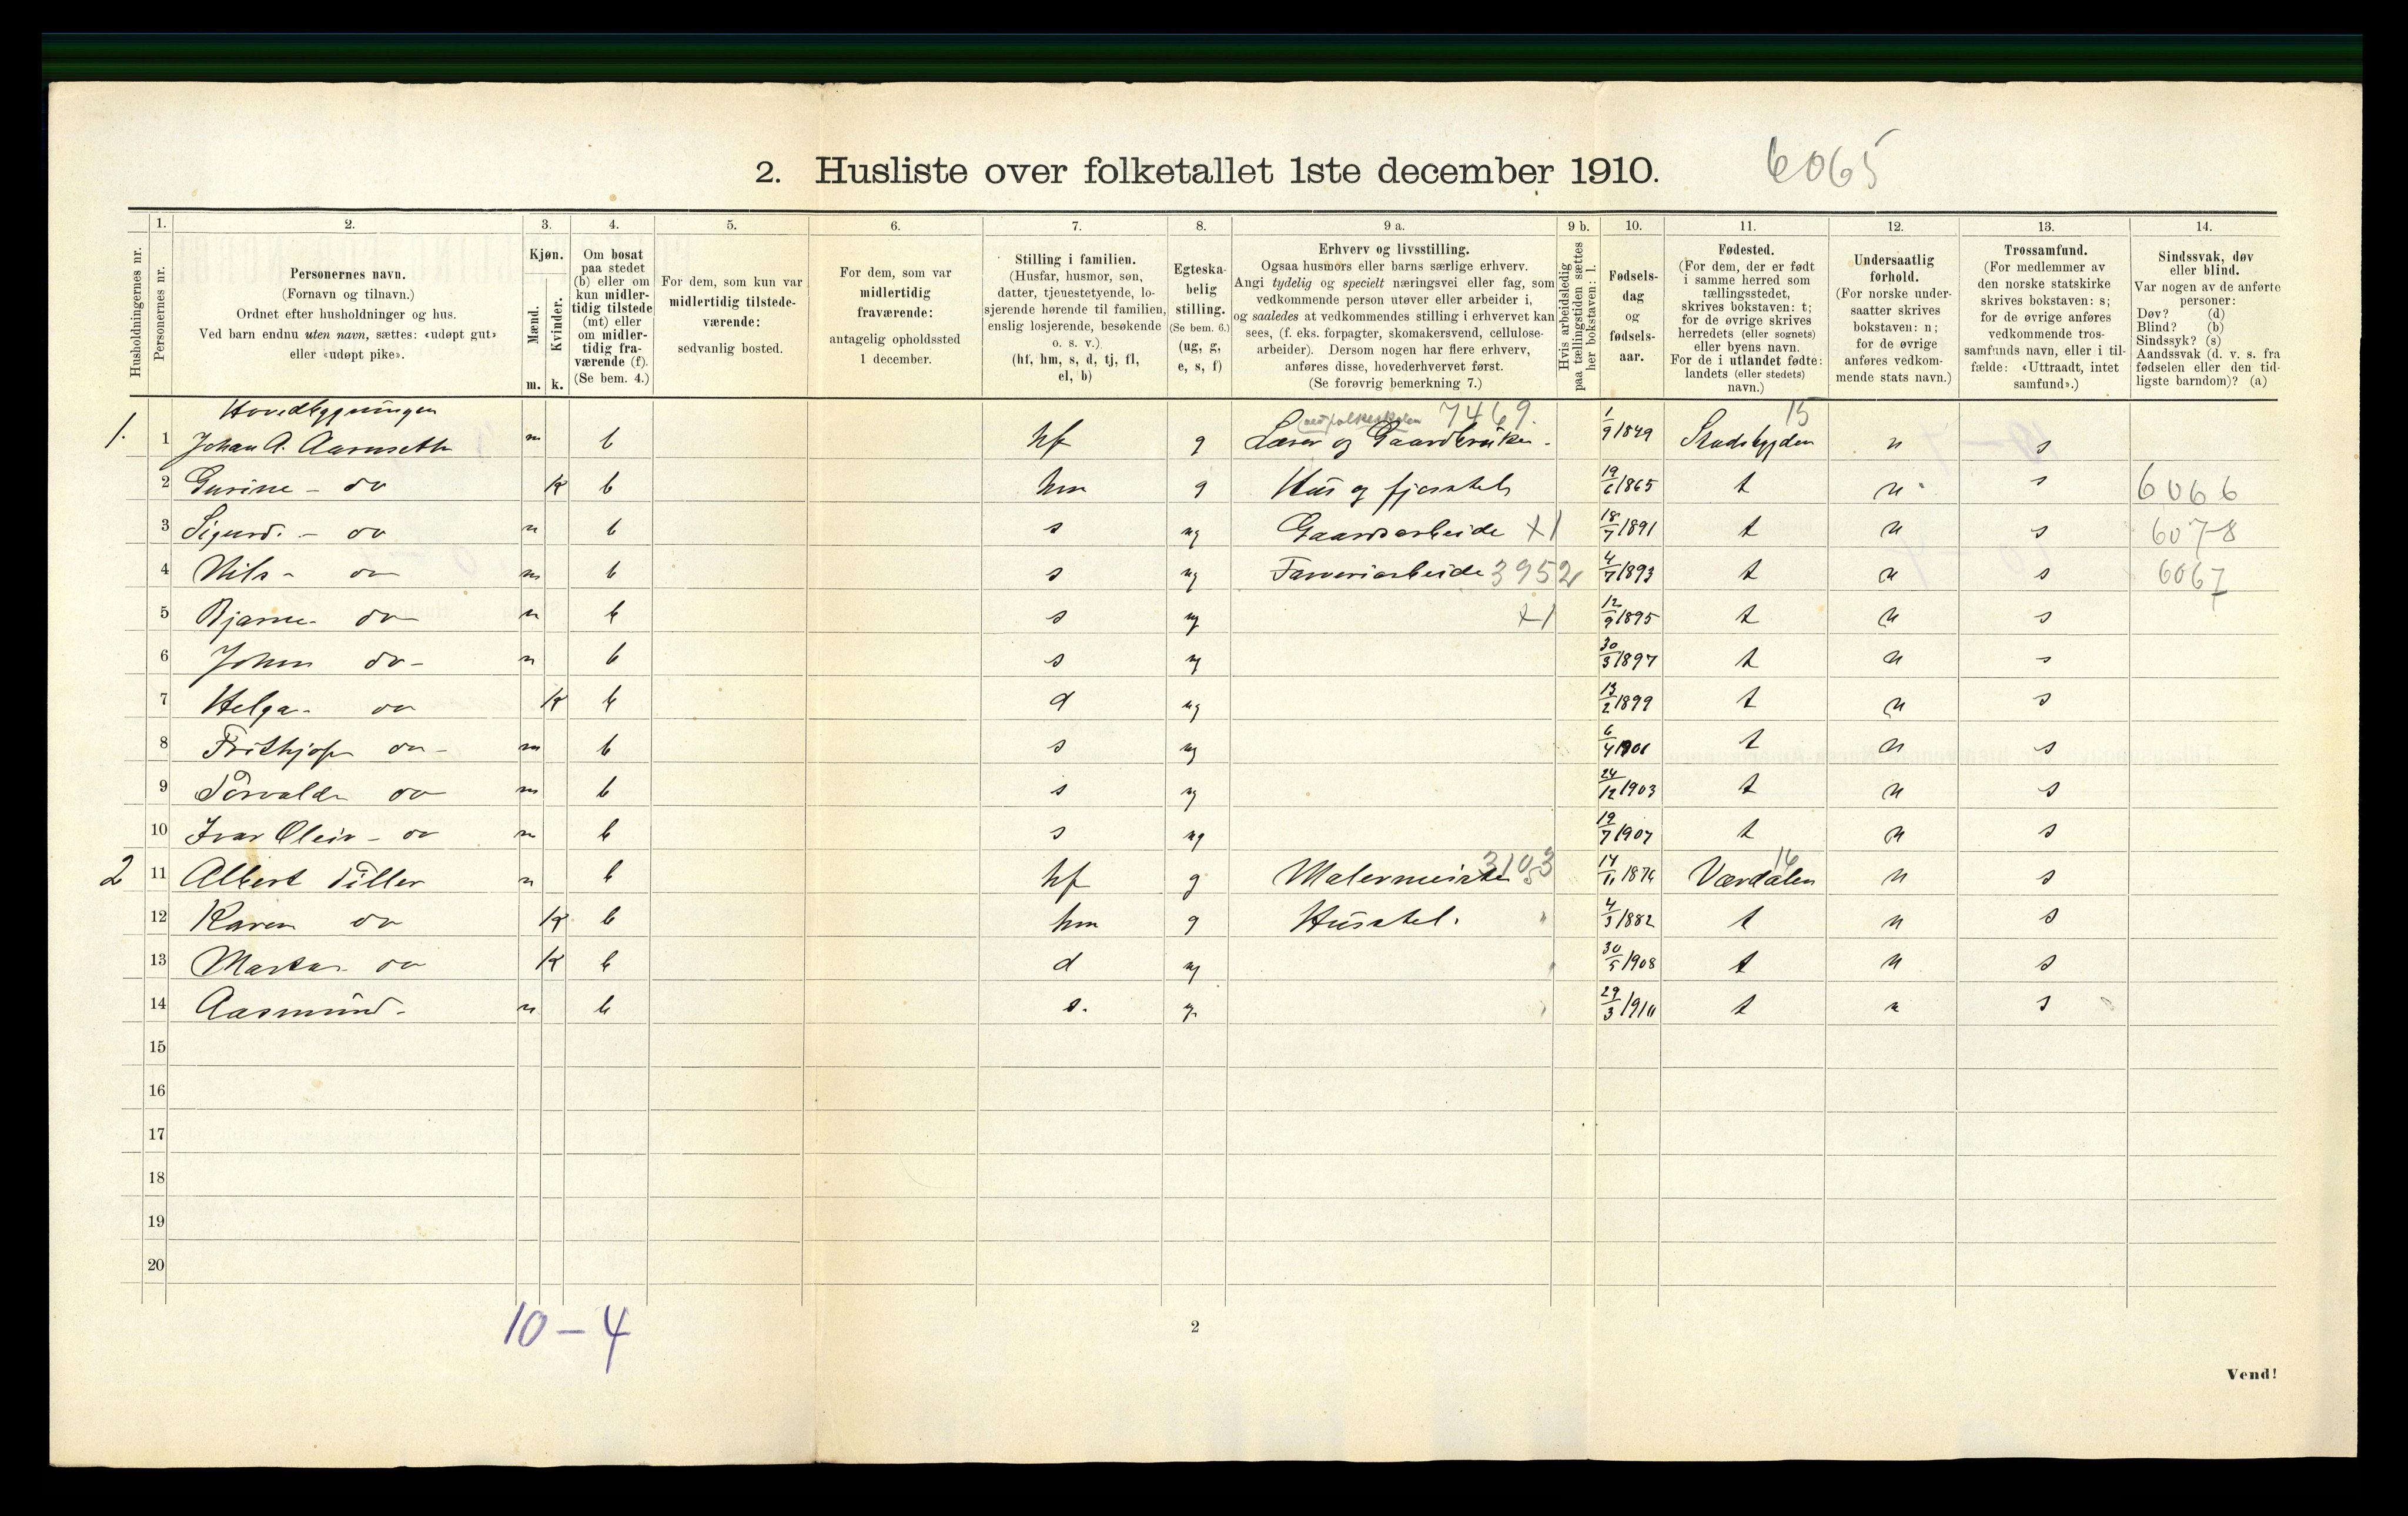 2. Husliste over folketallet 1ste december 1910. 6065
1. 2. 3. 4. 5. 6. 7. 8. 9 a. 9 b. 10. 11. 12. 13. 14.
Husholdningernes nr.
Personernes nr.
Personernes navn.
(Fornavn og tilnavn.)
Ordnet efter husholdninger og hus.
Ved barn endnu uten navn, sættes: «udøpt gut»
eller «udøpt pike».
Kjøn.
Mænd.
Kvinder.
m. k.
Om bosat
paa stedet
(b) eller om
kun midler-
tidig tilstede
(mt) eller
om midler-
tidig fra-
værende (f).
(Se bem. 4.)
For dem, som kun var
midlertidig tilstede-
værende:
sedvanlig bosted.
For dem, som var
midlertidig
fraværende:
antagelig opholdssted
1 december.
Stilling i familien.
(Husfar, husmor, søn,
datter, tjenestetyende, lo-
sjerende hørende til familien,
enslig losjerende, besøkende
o. s. v.)
(hf, hm, s, d, tj, fl,
el, b)
Egteska-
belig
stilling.
(Se bem. 6.)
(ug, g,
e, s, f)
Erhverv og livsstilling.
Ogsaa husmors eller barns særlige erhverv.
Angi tydelig og specielt næringsvei eller fag, som
vedkommende person utøver eller arbeider i,
og saaledes at vedkommendes stilling i erhvervet kan
sees, (f. eks. forpagter, skomakersvend, cellulose-
arbeider). Dersom nogen har flere erhverv,
anføres disse, hovederhvervet først.
(Se forøvrig bemerkning 7.)
Hvis arbeidsledig
paa tællingstiden sættes
her bokstaven: l.
Fødsels-
dag
og
fødsels-
aar.
Fødested.
(For dem, der er født
i samme herred som
tællingsstedet,
skrives bokstaven: t;
for de øvrige skrives
herredets (eller sognets)
eller byens navn.
For de i utlandet fødte:
landets (eller stedets)
navn.)
Undersaatlig
forhold.
(For norske under-
saatter skrives
bokstaven: n;
for de øvrige
anføres vedkom-
mende stats navn.)
Trossamfund.
(For medlemmer av
den norske statskirke
skrives bokstaven: s;
for de øvrige anføres
vedkommende tros-
samfunds navn, eller i til-
fælde: «Uttraadt, intet
samfund».)
Sindssvak, døv
eller blind.
Var nogen av de anførte
personer:
Døv? (d)
Blind? (b)
Sindssyk? (s)
Aandssvak (d. v. s. fra
fødselen eller den tid-
ligste barndom)? (a)
Hovedbygningen ved folkeskolen 7469. 15
1. 1 Johan A. Aarnseth m b hf g Lærer og Gaardbruker. 1/9 1849 Stadsbygden n s
2 Gurine - do k b hm g Hus og fjøsstel 19/6 1865 t n s 6066
3 Sigurd. - do m b s ug Gaardsarbeide X1 18/7 1891 t n s 607-8
4 Nils - do m b s ug Farveriarbeide 3952 4/7 1893 t n s 6067
5 Bjarne - do m b s ug X1 12/9 1895 t n s
6 Johan do - m b s ug 30/3 1897 t n s
7 Helga - do k b d ug 13/2 1899 t n s
8 Frithjof do - m b s ug 6/4 1901 t n s
9 Torvald - do m b s ug 24/12 1903 t n s
10 Ivar Oleiv - do m b s ug 19/7 1907 t n s
2 11 Albert Tiller m b hf g Malermeister 3103 14/11 1876 Værdalen 16 n s
12 Karen do k b hm g Husstel. 4/3 1882 t n s
13 Marta - do k b d ug 30/5 1908 t n s
14 Aasmund - m b s. ug 29/3 1910 t n s
15
16
17
18
19
20
10 - 4
2
Vend!